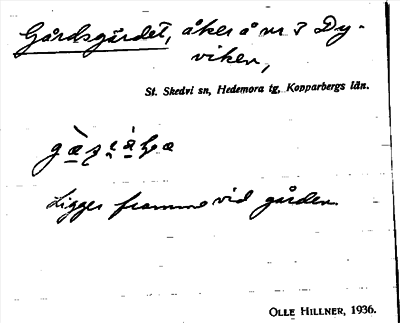 Gårdsgärdet, åker å nr 3 Dy-
viken,
St. Skedvi sn, Hedemora tg, Kopparbergs län.
Ligger framme vid gården.
OLLE HILLNER, 1936.